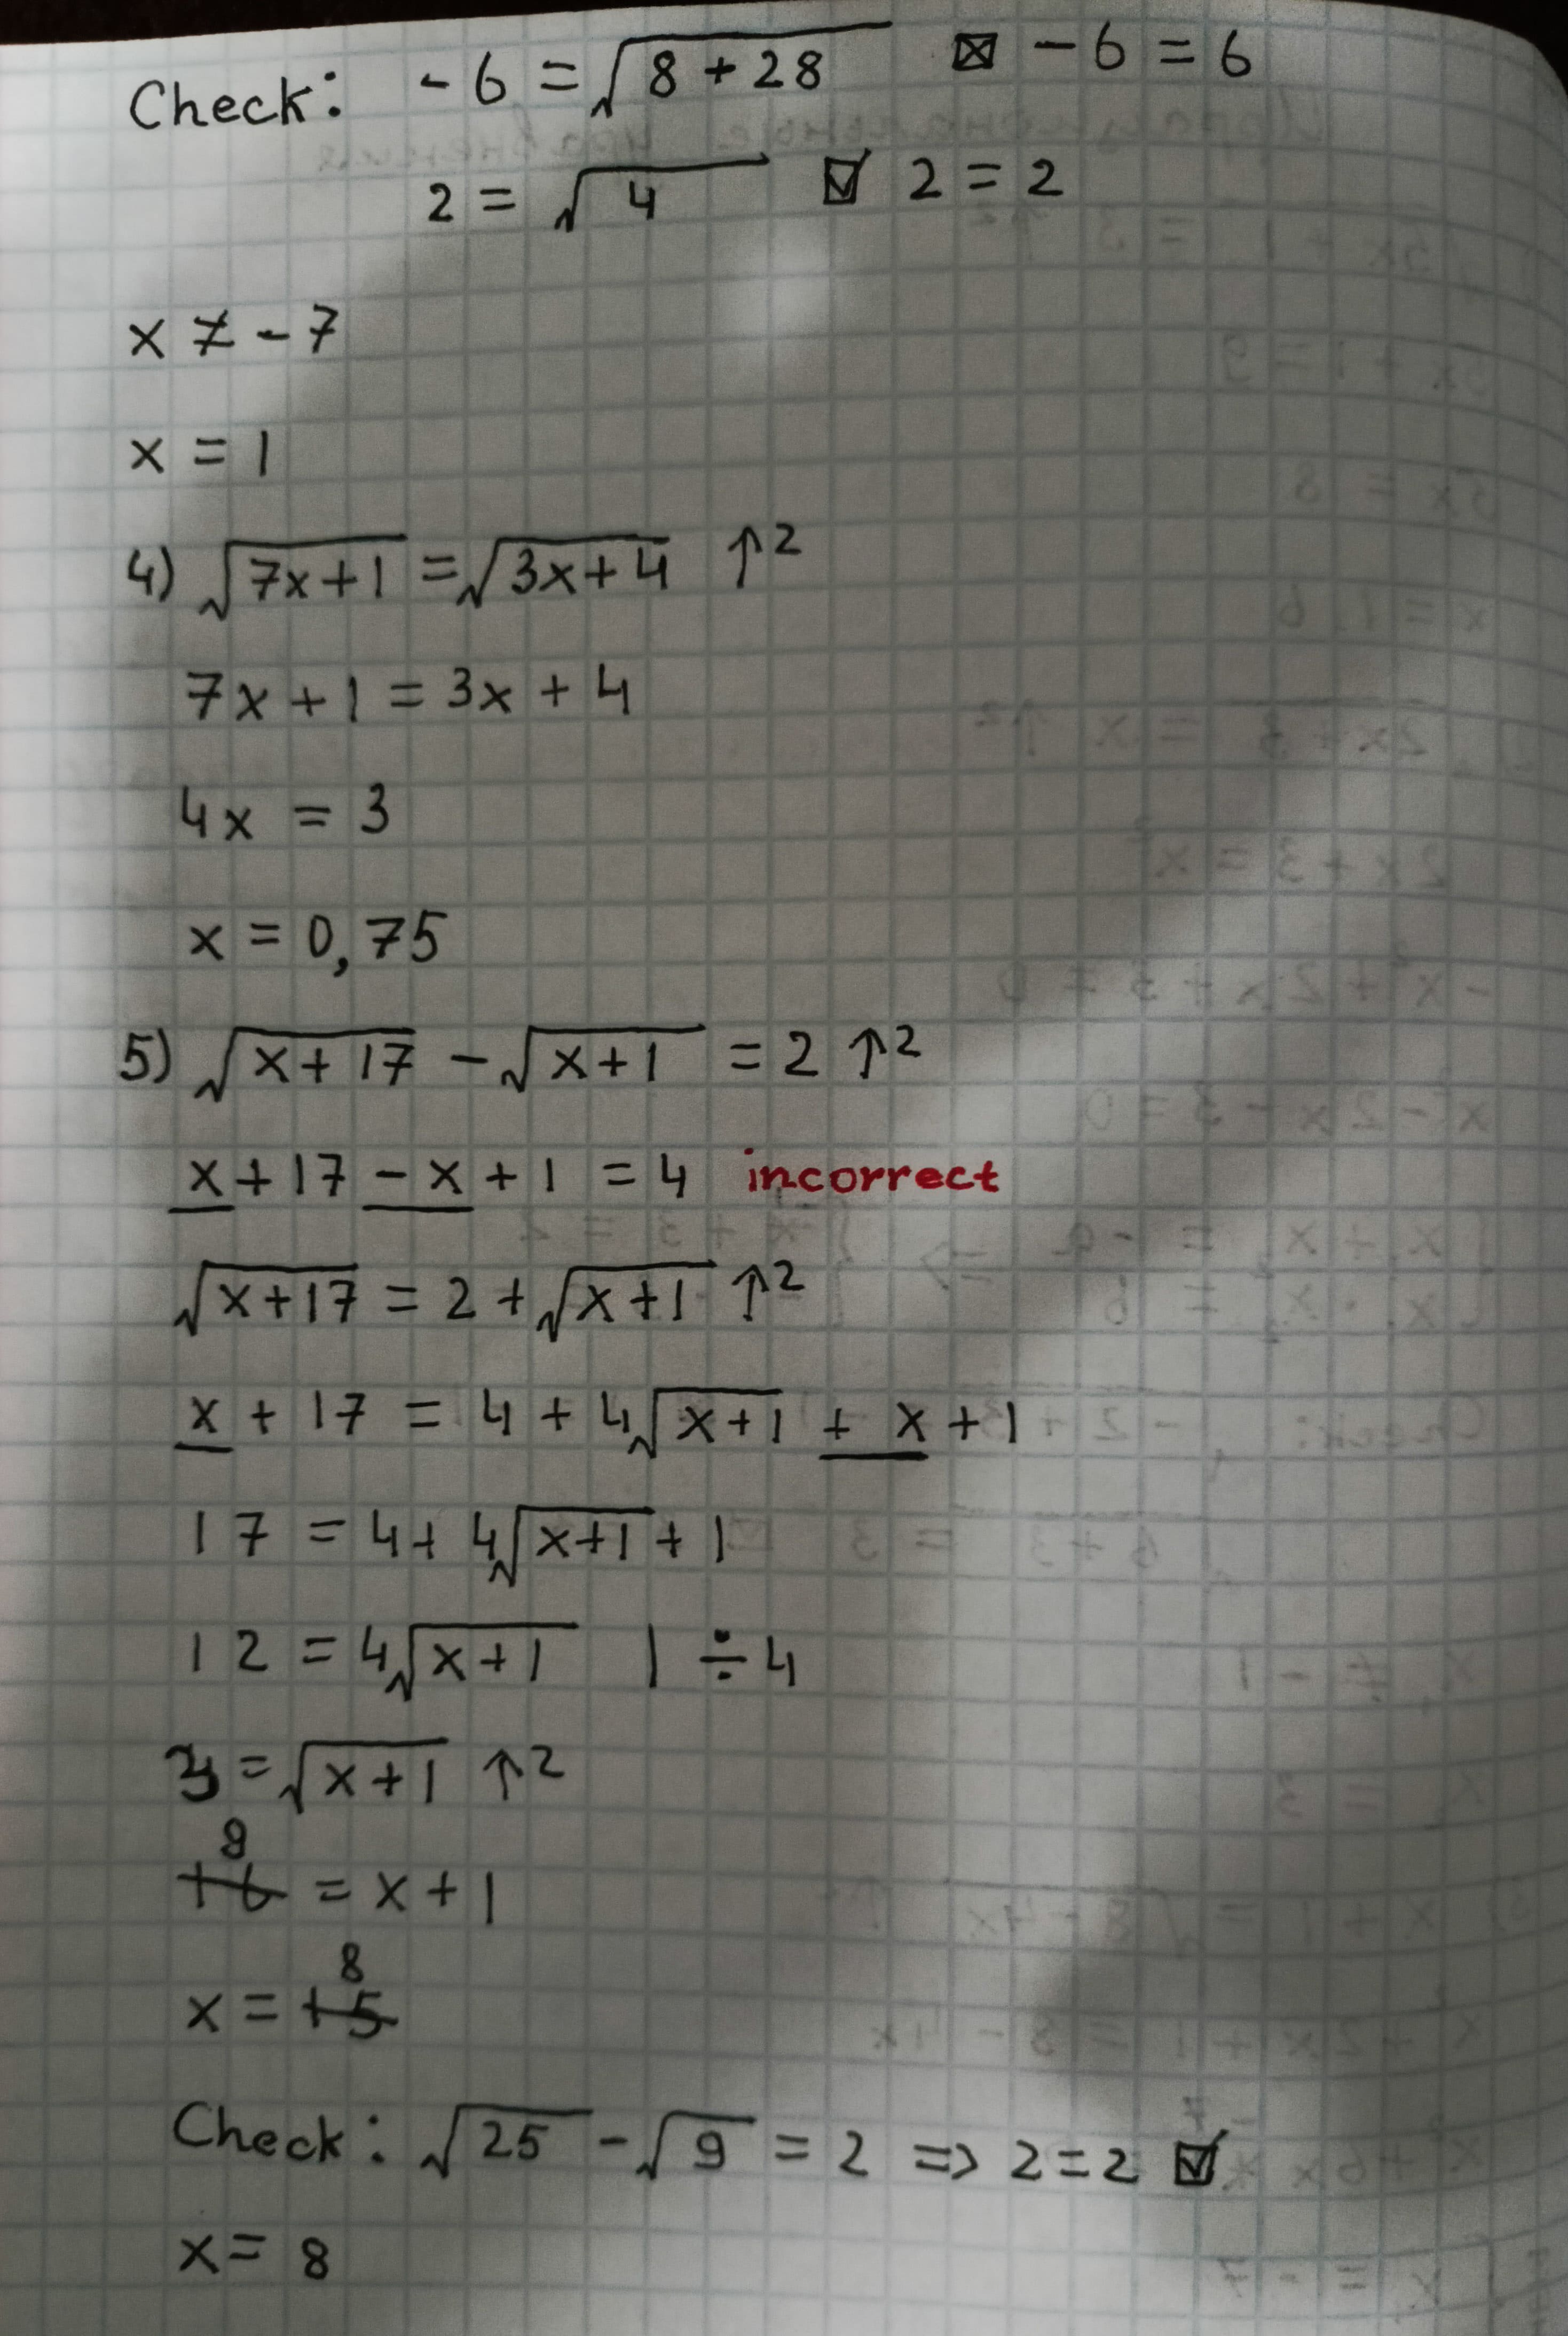 Check: -6 = √(8 + 28) ☒ -6 = 6
2 = √4 ☑ 2 = 2
x ≠ -7
x = 1
4) √(7x+1) = √(3x+4) ↑2
7x + 1 = 3x + 4
4x = 3
x = 0,75
5) √(x+17) - √(x+1) = 2 ↑2
x + 17 - x + 1 = 4 incorrect
√(x+17) = 2 + √(x+1) ↑2
x + 17 = 4 + 4√(x+1) + x + 1
17 = 4 + 4√(x+1) + 1
12 = 4√(x+1) | ÷4
3 = √(x+1) ↑2
9
16 = x + 1
8
x = 15
Check: √25 - √9 = 2 => 2 = 2 ☑
x = 8